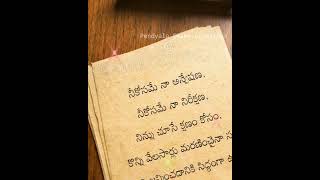 నీకోసమే నా అన్వేషణ.
నీకోసమే నా నిరీక్షణ.
నిన్ను చూసే క్షణం కోసం.
కొన్ని వేలసార్లు మరణించైనా
సిద్ధంగా